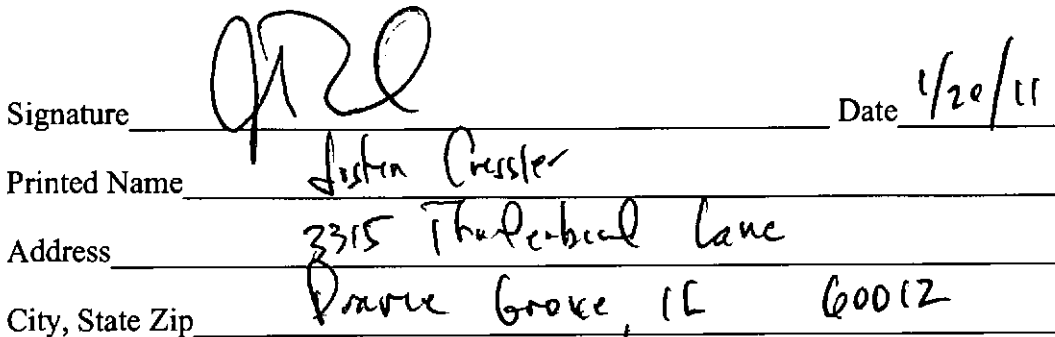 Signature Date 1/20/11
Printed Name Justin Cressler
Address 3315 Lane
City, State Zip Prairie Grove, IL 60012